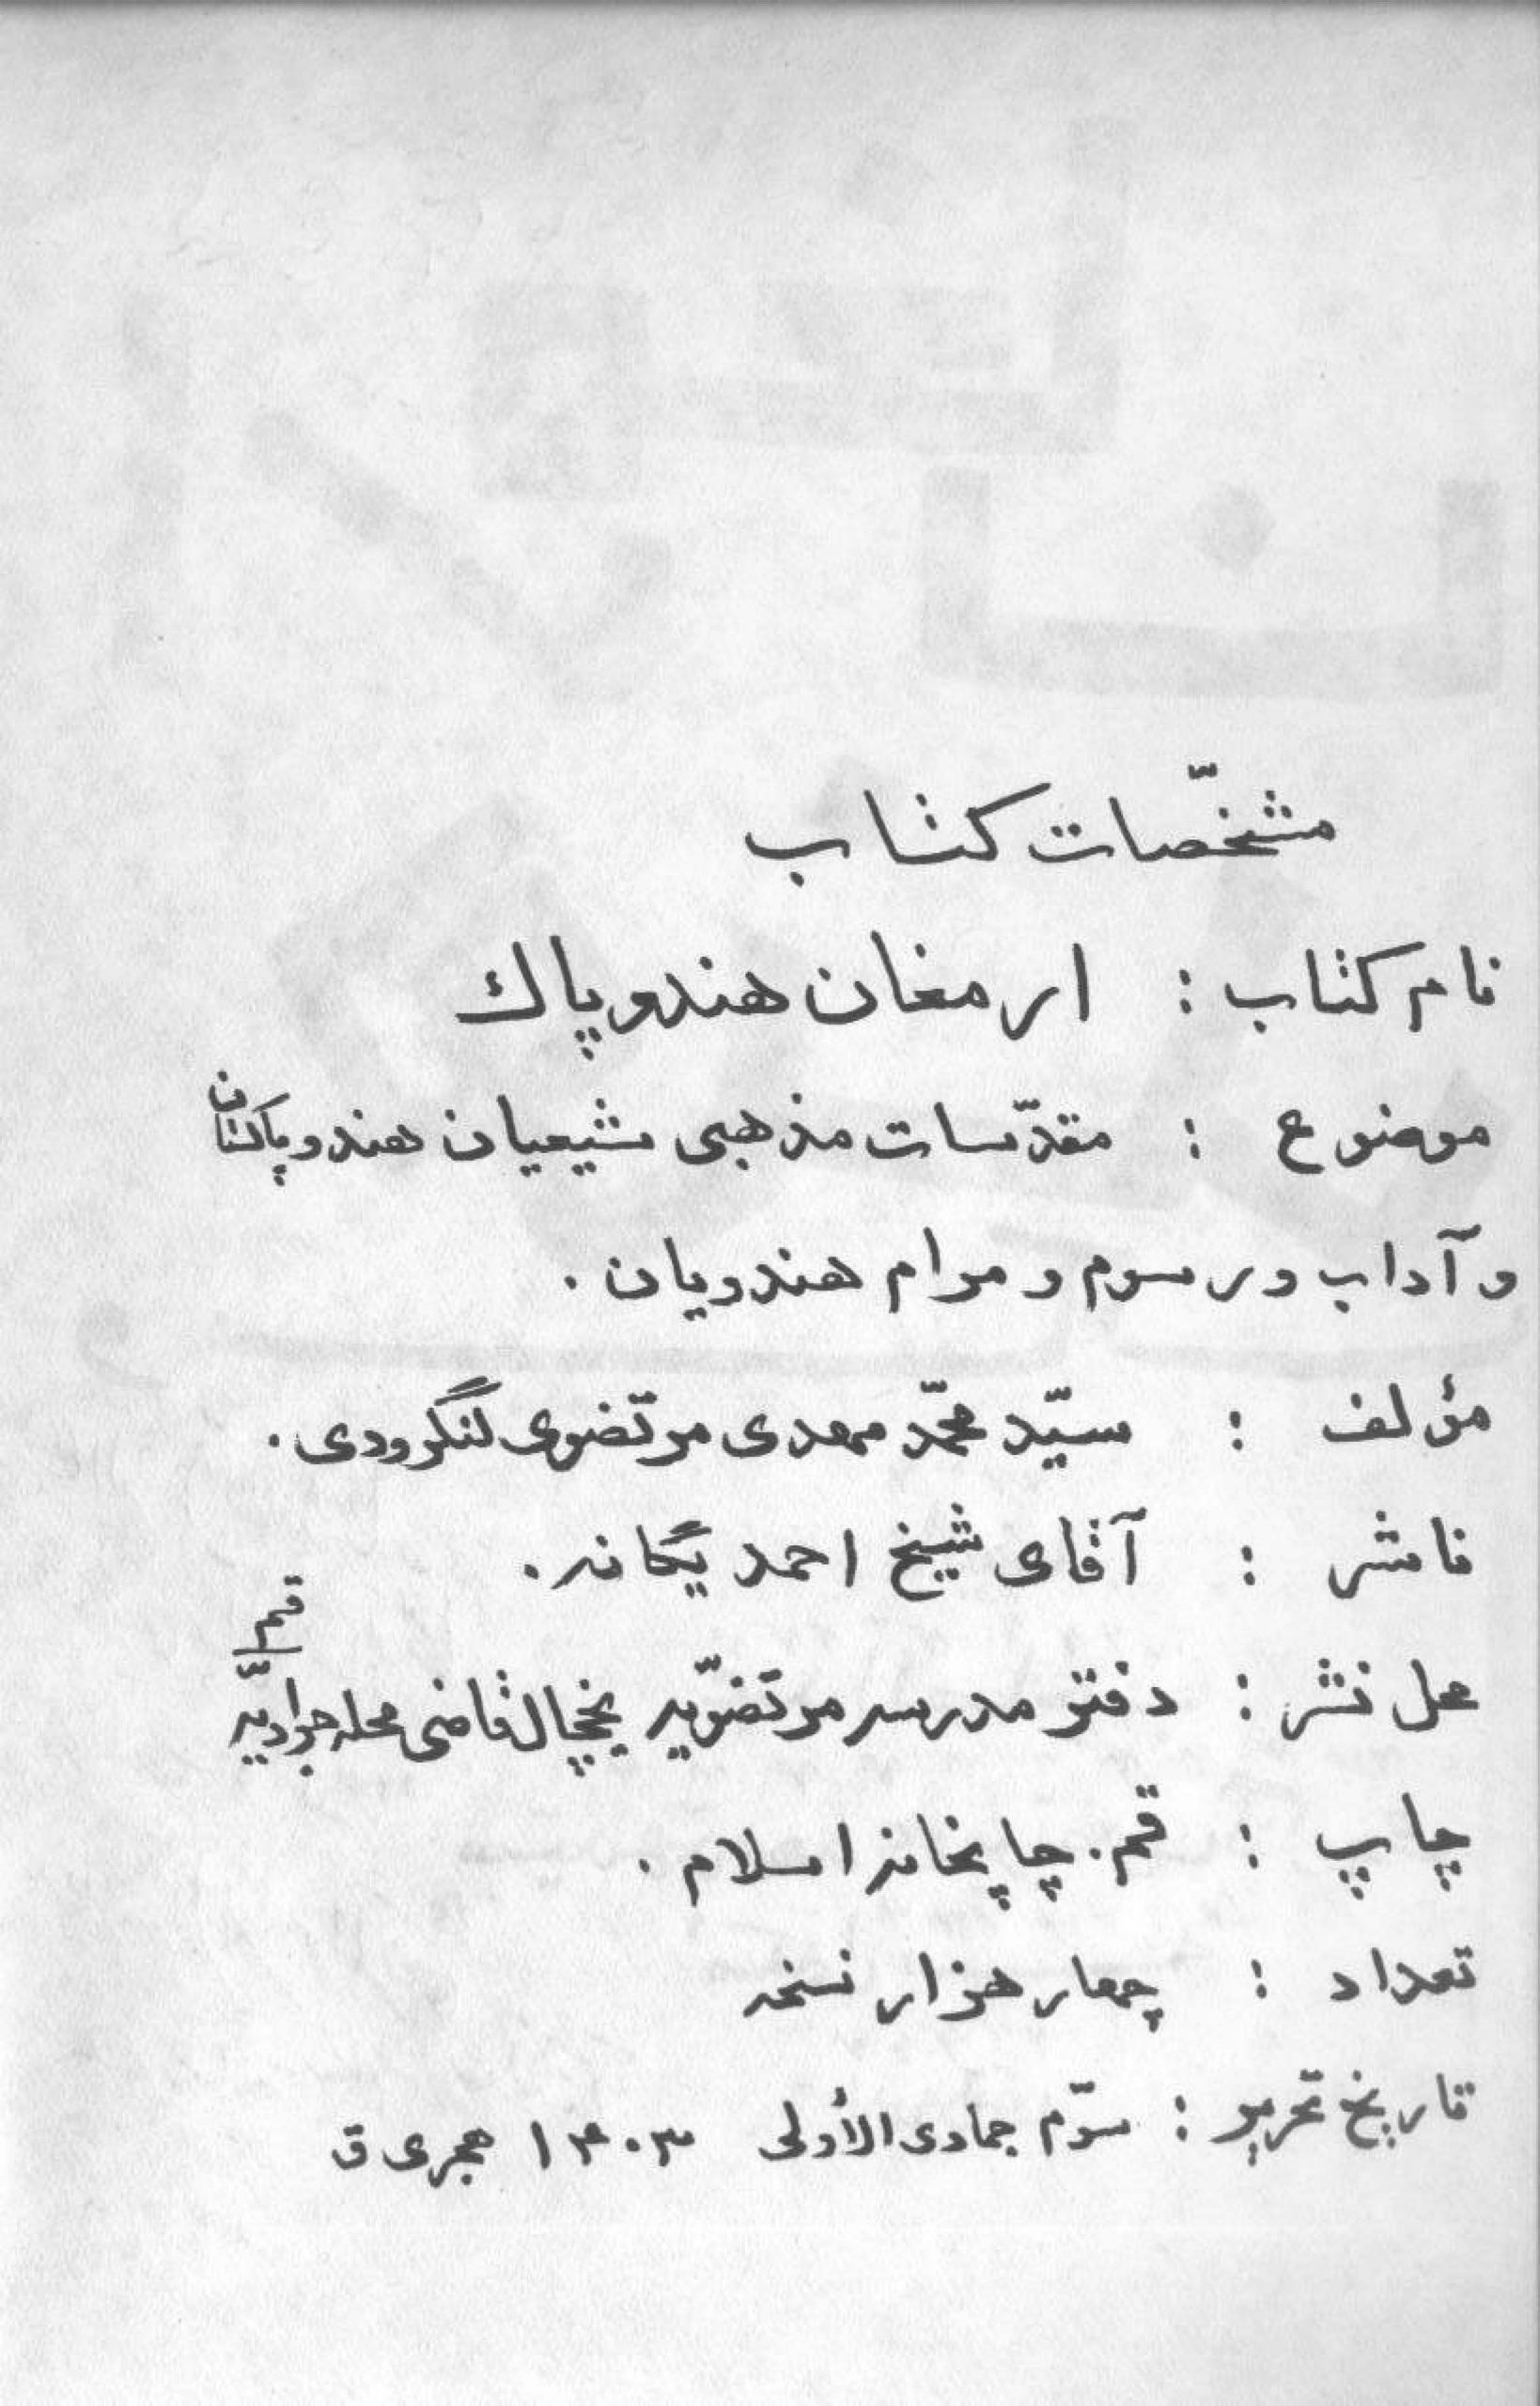 مشخّصات كتاب
نام كتاب : ارمغان هندوپاك
موضوع : مقدّسات مذهبى شيعيان هندوپاكستان
و آداب ورسوم و مرام هندويان .
مؤلف : سيّد محمّد مهدى مرتضوى لنگرودى .
ناشر : آقاى شيخ احمد يگانه .
محل نشر : دفتر مدرسه مرتضويّه يخچال قاضى محله جواديّه قم
چاپ : قم . چاپخانه اسلام .
تعداد : چهار هزار نسخه
تاريخ تحرير : سوّم جمادى الأولى ۱۴۰۳ هجرى ق